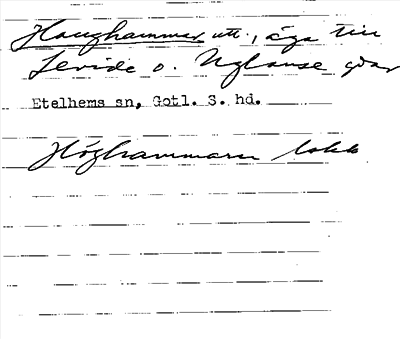 Haughammar utt., äga till
Levide o. Uglause gdar
Etelhems sn, Gotl. S. hd.
Höghammarn lokk